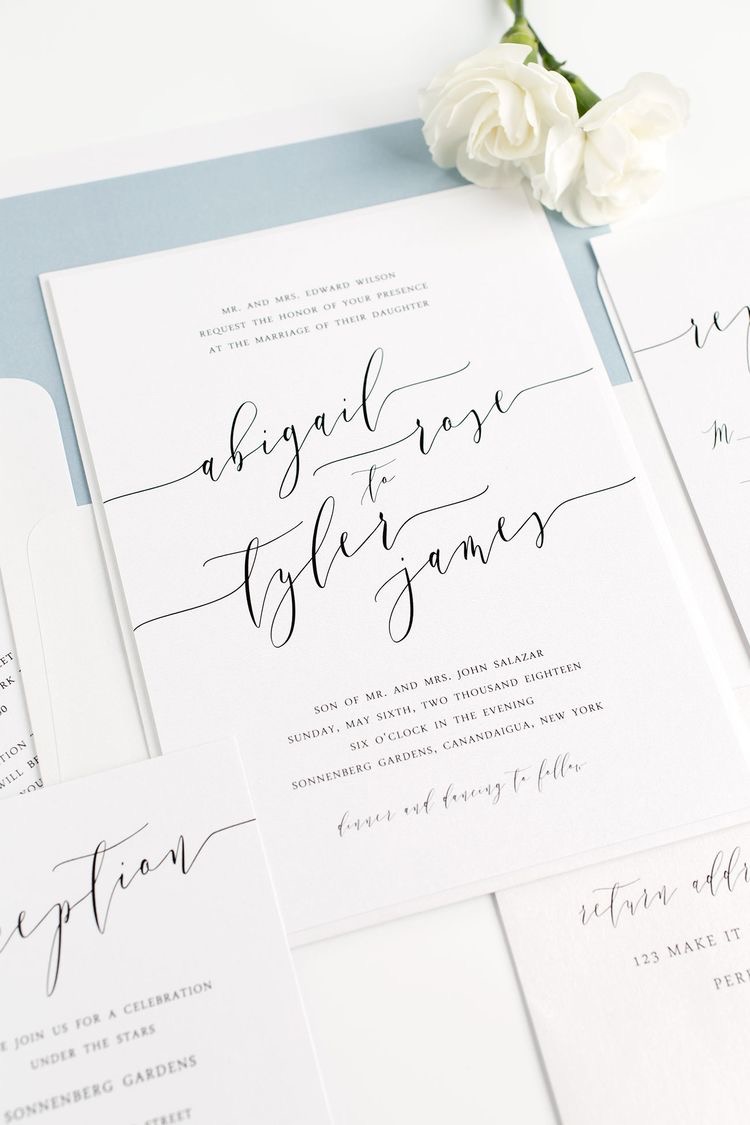 MR. AND MRS. EDWARD WILSON
REQUEST THE HONOR OF YOUR PRESENCE
AT THE MARRIAGE OF THEIR DAUGHTER
abigail
rose
to
tyler
james
SON OF MR. AND MRS. JOHN SALAZAR
SUNDAY, MAY SIXTH, TWO THOUSAND EIGHTEEN
SIX O'CLOCK IN THE EVENING
SONNENBERG GARDENS, CANANDAIGUA, NEW YORK
dinner and dancing to follow
M
WILL BE
eception
JOIN US FOR A CELEBRATION
UNDER THE STARS
SONNENBERG GARDENS
STREET
return addr
123 MAKE IT
PER